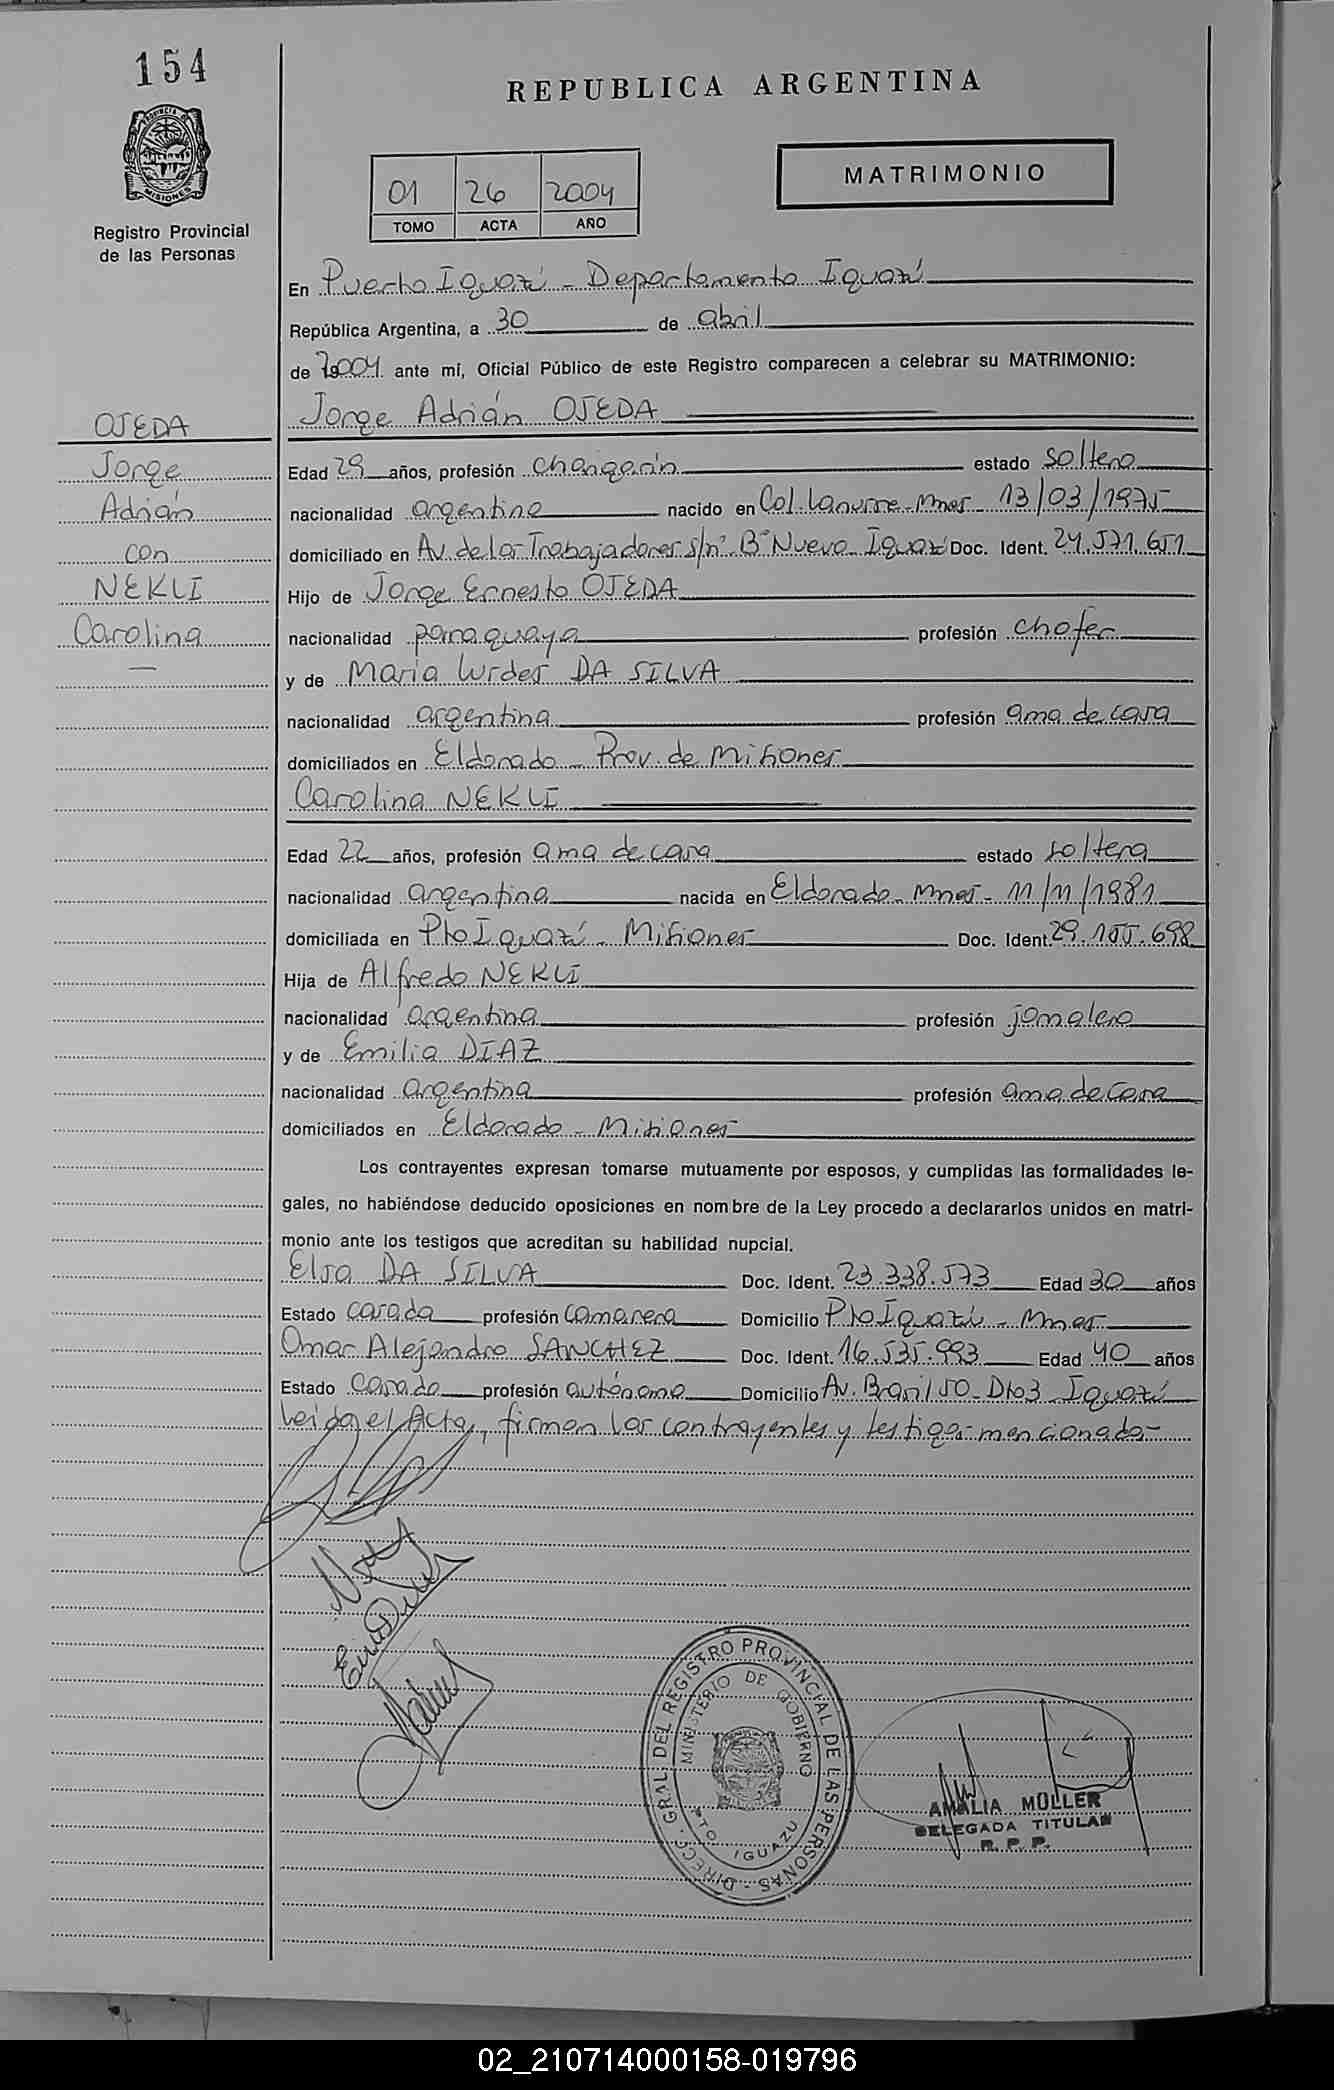 154
REPUBLICA ARGENTINA
PROVINCIA DE
MISIONES
Registro Provincial
de las Personas
01 26 2004
TOMO ACTA AÑO
MATRIMONIO
En Puerto Iguazú - Departamento Iguazú
República Argentina, a 30 de abril
de 2004 ante mí, Oficial Público de este Registro comparecen a celebrar su MATRIMONIO:
Jorge Adrián OJEDA
OJEDA
Jorge
Adrián
con
NEKLI
Carolina
Edad 29 años, profesión changarín estado soltero
nacionalidad argentina nacido en Col. Lanusse - Mnes - 13/03/1975
domiciliado en Av. de los Trabajadores s/nº - Bº Nuevo - Iguazú Doc. Ident. 24.571.651
Hijo de Jorge Ernesto OJEDA
nacionalidad paraguaya profesión chofer
y de María Lurdes DA SILVA
nacionalidad argentina profesión ama de casa
domiciliados en Eldorado - Prov. de Misiones
Carolina NEKLI
Edad 22 años, profesión ama de casa estado soltera
nacionalidad argentina nacida en Eldorado - Mnes - 11/11/1981
domiciliada en Pto Iguazú - Misiones Doc. Ident. 29.155.698
Hija de Alfredo NEKLI
nacionalidad argentina profesión jornalero
y de Emilia DIAZ
nacionalidad argentina profesión ama de casa
domiciliados en Eldorado - Misiones
Los contrayentes expresan tomarse mutuamente por esposos, y cumplidas las formalidades le-
gales, no habiéndose deducido oposiciones en nombre de la Ley procedo a declararlos unidos en matri-
monio ante los testigos que acreditan su habilidad nupcial.
Elsa DA SILVA Doc. Ident. 23.338.573 Edad 30 años
Estado casada profesión camarera Domicilio Pto Iguazú - Mnes
Omar Alejandro SANCHEZ Doc. Ident. 16.535.993 Edad 40 años
Estado Casado profesión autónomo Domicilio Av. Brasil 50 - Dto 3 Iguazú
Leída el Acta, firman los contrayentes y testigos mencionados
DIRECC. GRAL DEL REGISTRO PROVINCIAL DE LAS PERSONAS
MINISTERIO DE GOBIERNO
PTO. IGUAZU
AMALIA MULLER
DELEGADA TITULAR
R. P. P.
02_210714000158-019796